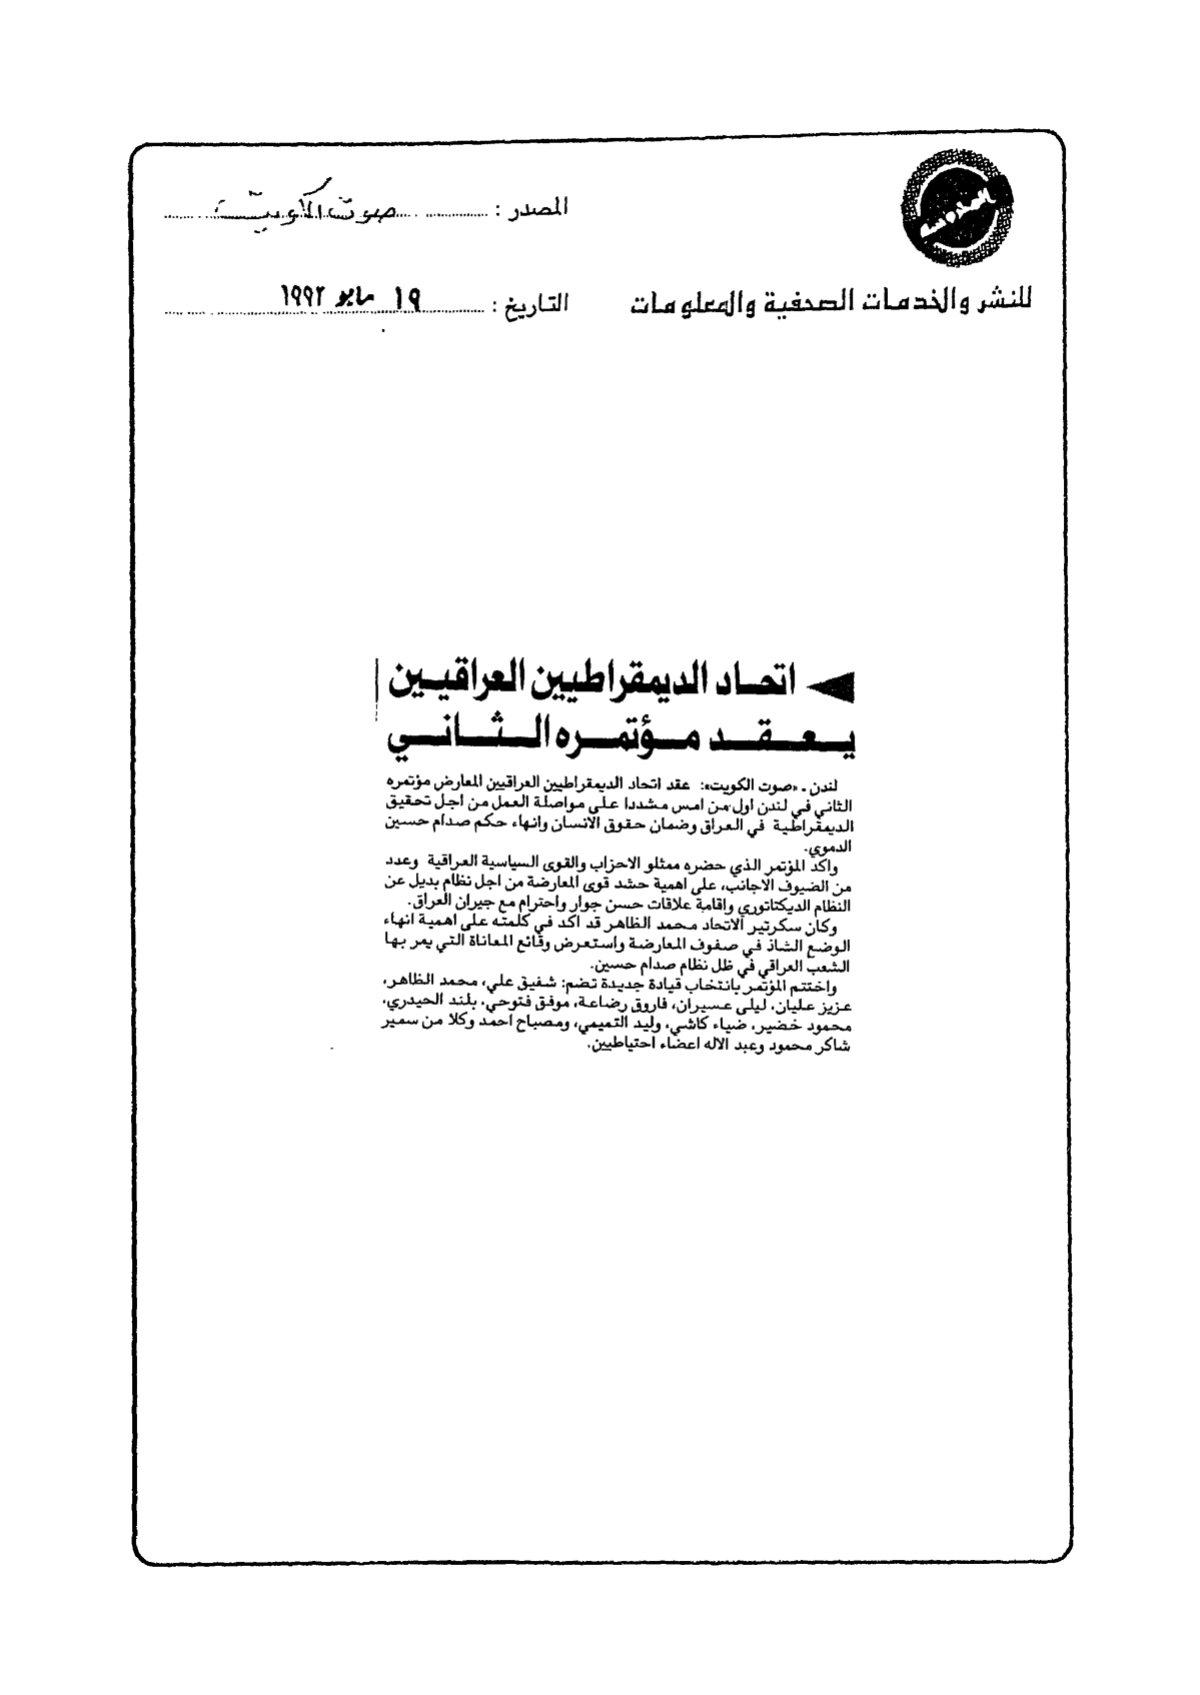 المصدر : صوت الكويت
للنشر والخدمات الصحفية والمعلومات
التاريخ : ١٩ مايو ١٩٩٢
اتحاد الديمقراطيين العراقيين
يعقد مؤتمره الثاني
لندن ـ «صوت الكويت»: عقد اتحاد الديمقراطيين العراقيين المعارض مؤتمره
الثاني في لندن اول من امس مشددا على مواصلة العمل من اجل تحقيق
الديمقراطية في العراق وضمان حقوق الانسان وانهاء حكم صدام حسين
الدموي.
واكد المؤتمر الذي حضره ممثلو الاحزاب والقوى السياسية العراقية وعدد
من الضيوف الاجانب، على اهمية حشد قوى المعارضة من اجل نظام بديل عن
النظام الديكتاتوري واقامة علاقات حسن جوار واحترام مع جيران العراق.
وكان سكرتير الاتحاد محمد الظاهر قد اكد في كلمته على اهمية انهاء
الوضع الشاذ في صفوف المعارضة واستعرض وقائع المعاناة التي يمر بها
الشعب العراقي في ظل نظام صدام حسين.
واختتم المؤتمر بانتخاب قيادة جديدة تضم: شفيق علي، محمد الظاهر،
عزيز عليان، ليلى عسيران، فاروق رضاعة، موفق فتوحي، بلند الحيدري،
محمود خضير، ضياء كاشي، وليد التميمي، ومصباح احمد وكلا من سمير
شاكر محمود وعبد الاله اعضاء احتياطيين.